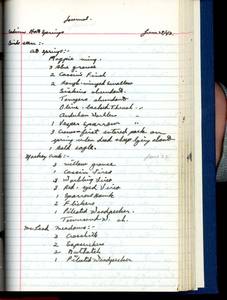 Journal.
Hot Springs June
Birds seen :-
At Springs:-
Magpie
3 Blue grouse
2 Cassin's Finch
2 Rough-winged Swallow
Siskins abundant
Tanagers abundant
Olive-backed Thrush
Audubon Warbler
1 Vesper Sparrow
3 Crows - first entered park on
spring when dead sheep lying about
1 Bald eagle.
Creek:-
3 willow grouse
1 Cassin Vireo
3 Warbling Vireo
2 Red-eyed Vireo
1 Sparrow Hawk
2 Flickers
1 Pileated Woodpecker
Townsend's
McLeod Meadows:-
2 Crossbills
2 Sapsuckers
2 Nuthatch
1 Pileated Woodpecker